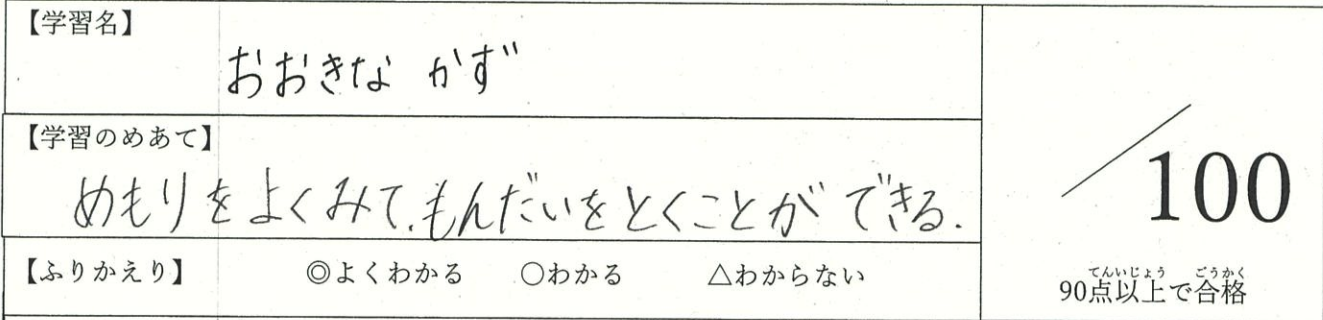 【学習名】
おおきな かず
【学習のめあて】
めもりをよくみて、もんだいをとくことができる.
【ふりかえり】 ◎よくわかる ○わかる △わからない
/100
90点以上で合格
てんいじょう ごうかく